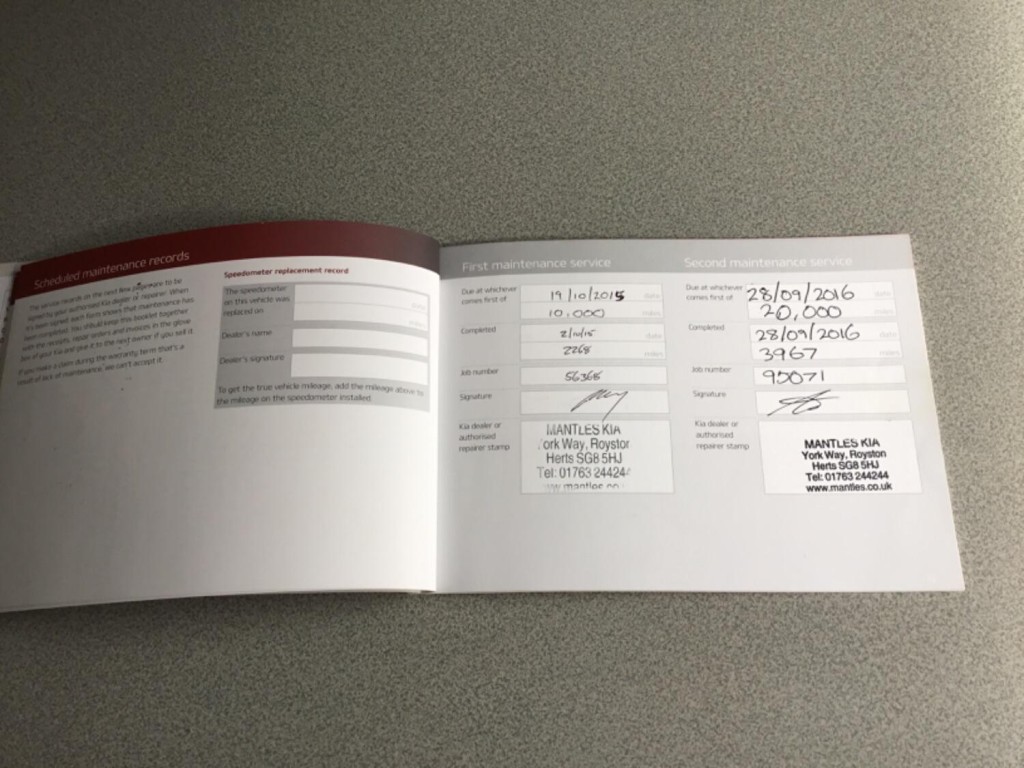 Scheduled maintenance records
The service records on the next few pages are to be
signed by your authorised Kia dealer or repairer. When
it's been signed each form shows that maintenance has
been completed. You should keep this booklet together
with the receipts, repair orders and invoices in the glove
box of your Kia and give it to the next owner if you sell it.
If you make a claim during the warranty term that's a
result of lack of maintenance, we can't accept it.
Speedometer replacement record
The speedometer
on this vehicle was
replaced on
date
miles
Dealer's name
Dealer's signature
To get the true vehicle mileage, add the mileage above to
the mileage on the speedometer installed.
First maintenance service
Due at whichever
comes first of
19/10/2015 date
10,000 miles
Completed
2/10/15 date
2268 miles
Job number
56365
Signature
Kia dealer or
authorised
repairer stamp
MANTLES KIA
ork Way, Roystor
Herts SG8 5HJ
Tel: 01763 24424
w.mantles.co
Second maintenance service
Due at whichever
comes first of
28/09/2016 date
20,000 miles
Completed
28/09/2016 date
3967 miles
Job number
95071
Signature
Kia dealer or
authorised
repairer stamp
MANTLES KIA
York Way, Royston
Herts SG8 5HJ
Tel: 01763 244244
www.mantles.co.uk